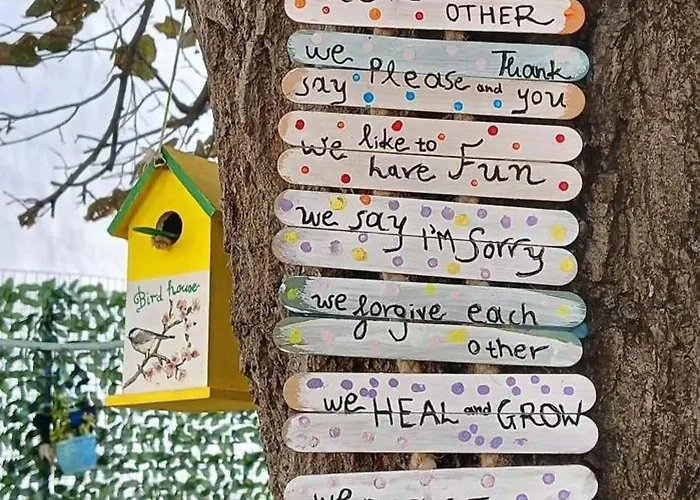 OTHER
we Thank
say Please and you
we like to
have Fun
we say
i'm Sorry
we forgive each
other
we HEAL and GROW
we
Bird house